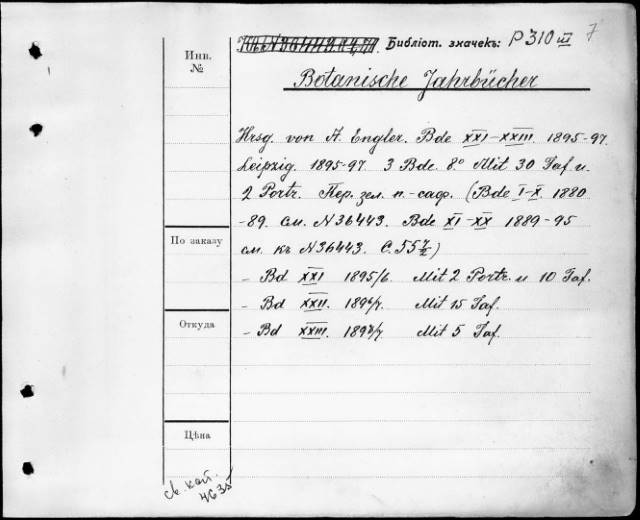 Библіот. значекъ: P 310 III 7
Инв. №
Botanische Jahrbücher
Hrsg. von A. Engler. Bde XXI-XXIII. 1895-97.
Leipzig. 1895-97. 3 Bde. 8° Mit 30 Taf. u.
2 Portr. Пер. зел. п.-саф. (Bde I-X. 1880
-89. см. N36443. Bde XI-XX 1889-95
По заказу
см. къ N36443. C.55
- Bd XXI 1895/6. Mit 2 Portr. u 10 Taf.
- Bd XXII. 1896/7. Mit 15 Taf.
Откуда
- Bd XXIII. 1896/7. Mit 5 Taf.
Цѣна
св. кат.
4635